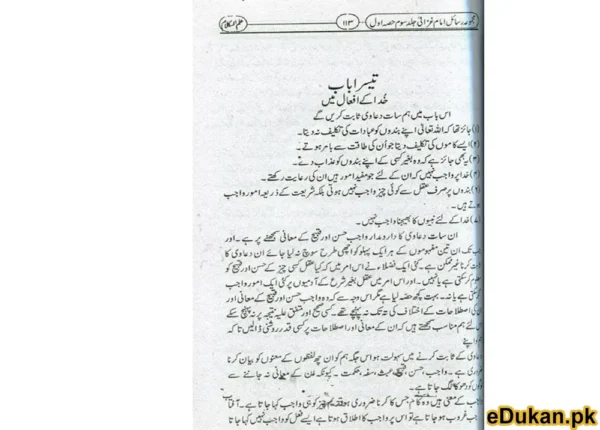 مجموعہ رسائل امام غزالیؒ جلد سوم حصہ اول ۱۱۳ علم الکلام
تیسرا باب
خدا کے افعال میں
اس باب میں ہم سات دعاوی ثابت کریں گے
(۱) جائز تھا کہ اللہ تعالیٰ اپنے بندوں کو عبادات کی تکلیف نہ دیتا۔
(۲) ایسے کاموں کی تکلیف دیتا جو اُن کی طاقت سے باہر ہوتے۔
(۳) یہ بھی جائز ہے کہ وہ بغیر کسی کے اپنے بندوں کو عذاب دے۔
(۴) خدا پر واجب نہیں کہ ان کے لئے جو مفید امور ہیں ان کی رعایت رکھے۔
(۲) بندوں پر صرف عقل سے کوئی چیز واجب نہیں ہوتی بلکہ شریعت کے ذریعہ امور واجب
ہوتے ہیں۔
(۷) خدا کے لئے نبیوں کا بھیجنا واجب نہیں۔
ان سات دعاوی کا دارومدار واجب حسن اور قبیح کے معانی سمجھنے پر ہے۔ اور
تک ان تین مفہوموں کے ہر ایک پہلو کو اچھی طرح سوچ نہ لیا جائے ان دعاوی کا
کرنا غیر ممکن ہے۔ کئی ایک فضلاء نے اس امر میں کہ کیا عقل کسی چیز کے حسن اور قبیح کو
کر سکتی ہے یا نہیں۔ اور اس امر میں عقل بغیر شرع کے آدمیوں پر کئی ایک امور واجب
ہے یا نہ۔ بہت کچھ حصہ لیا ہے مگر اس وجہ سے کہ وہ واجب حسن اور قبیح کے معانی اور
کی اصطلاحات کے اختلاف کی تہ تک نہ پہنچے تھے۔ کسی صحیح اور متفق علیہ نتیجہ پر نہ پہنچ سکے
لئے ہم مناسب سمجھتے ہیں کہ ان کے معانی اور اصطلاحات پر کسی قدر روشنی ڈالیں تا کہ
اپنے
دعاوی کے ثابت کرنے میں سہولت ہو اس جگہ ہم کو ان چھ لفظوں کے معنوں کو بیان کرنا
ضروری ہے۔ واجب، حسن، قبیح، عبث، سفہ، حکمت۔ کیونکہ ان کے معانی نہ جاننے سے
کو دھوکا لگ جاتا ہے۔
واجب کے معنی ہیں وہ کام، جس کا کرنا ضروری ہو قدیم چیز کو بھی واجب کہا جاتا ہے۔ آفتاب
جب غروب ہو جاتا ہے تو اس پر واجب کا اطلاق ہوتا ہے ایسے فعل کو واجب نہیں کہا جاتا
eDukan.pk